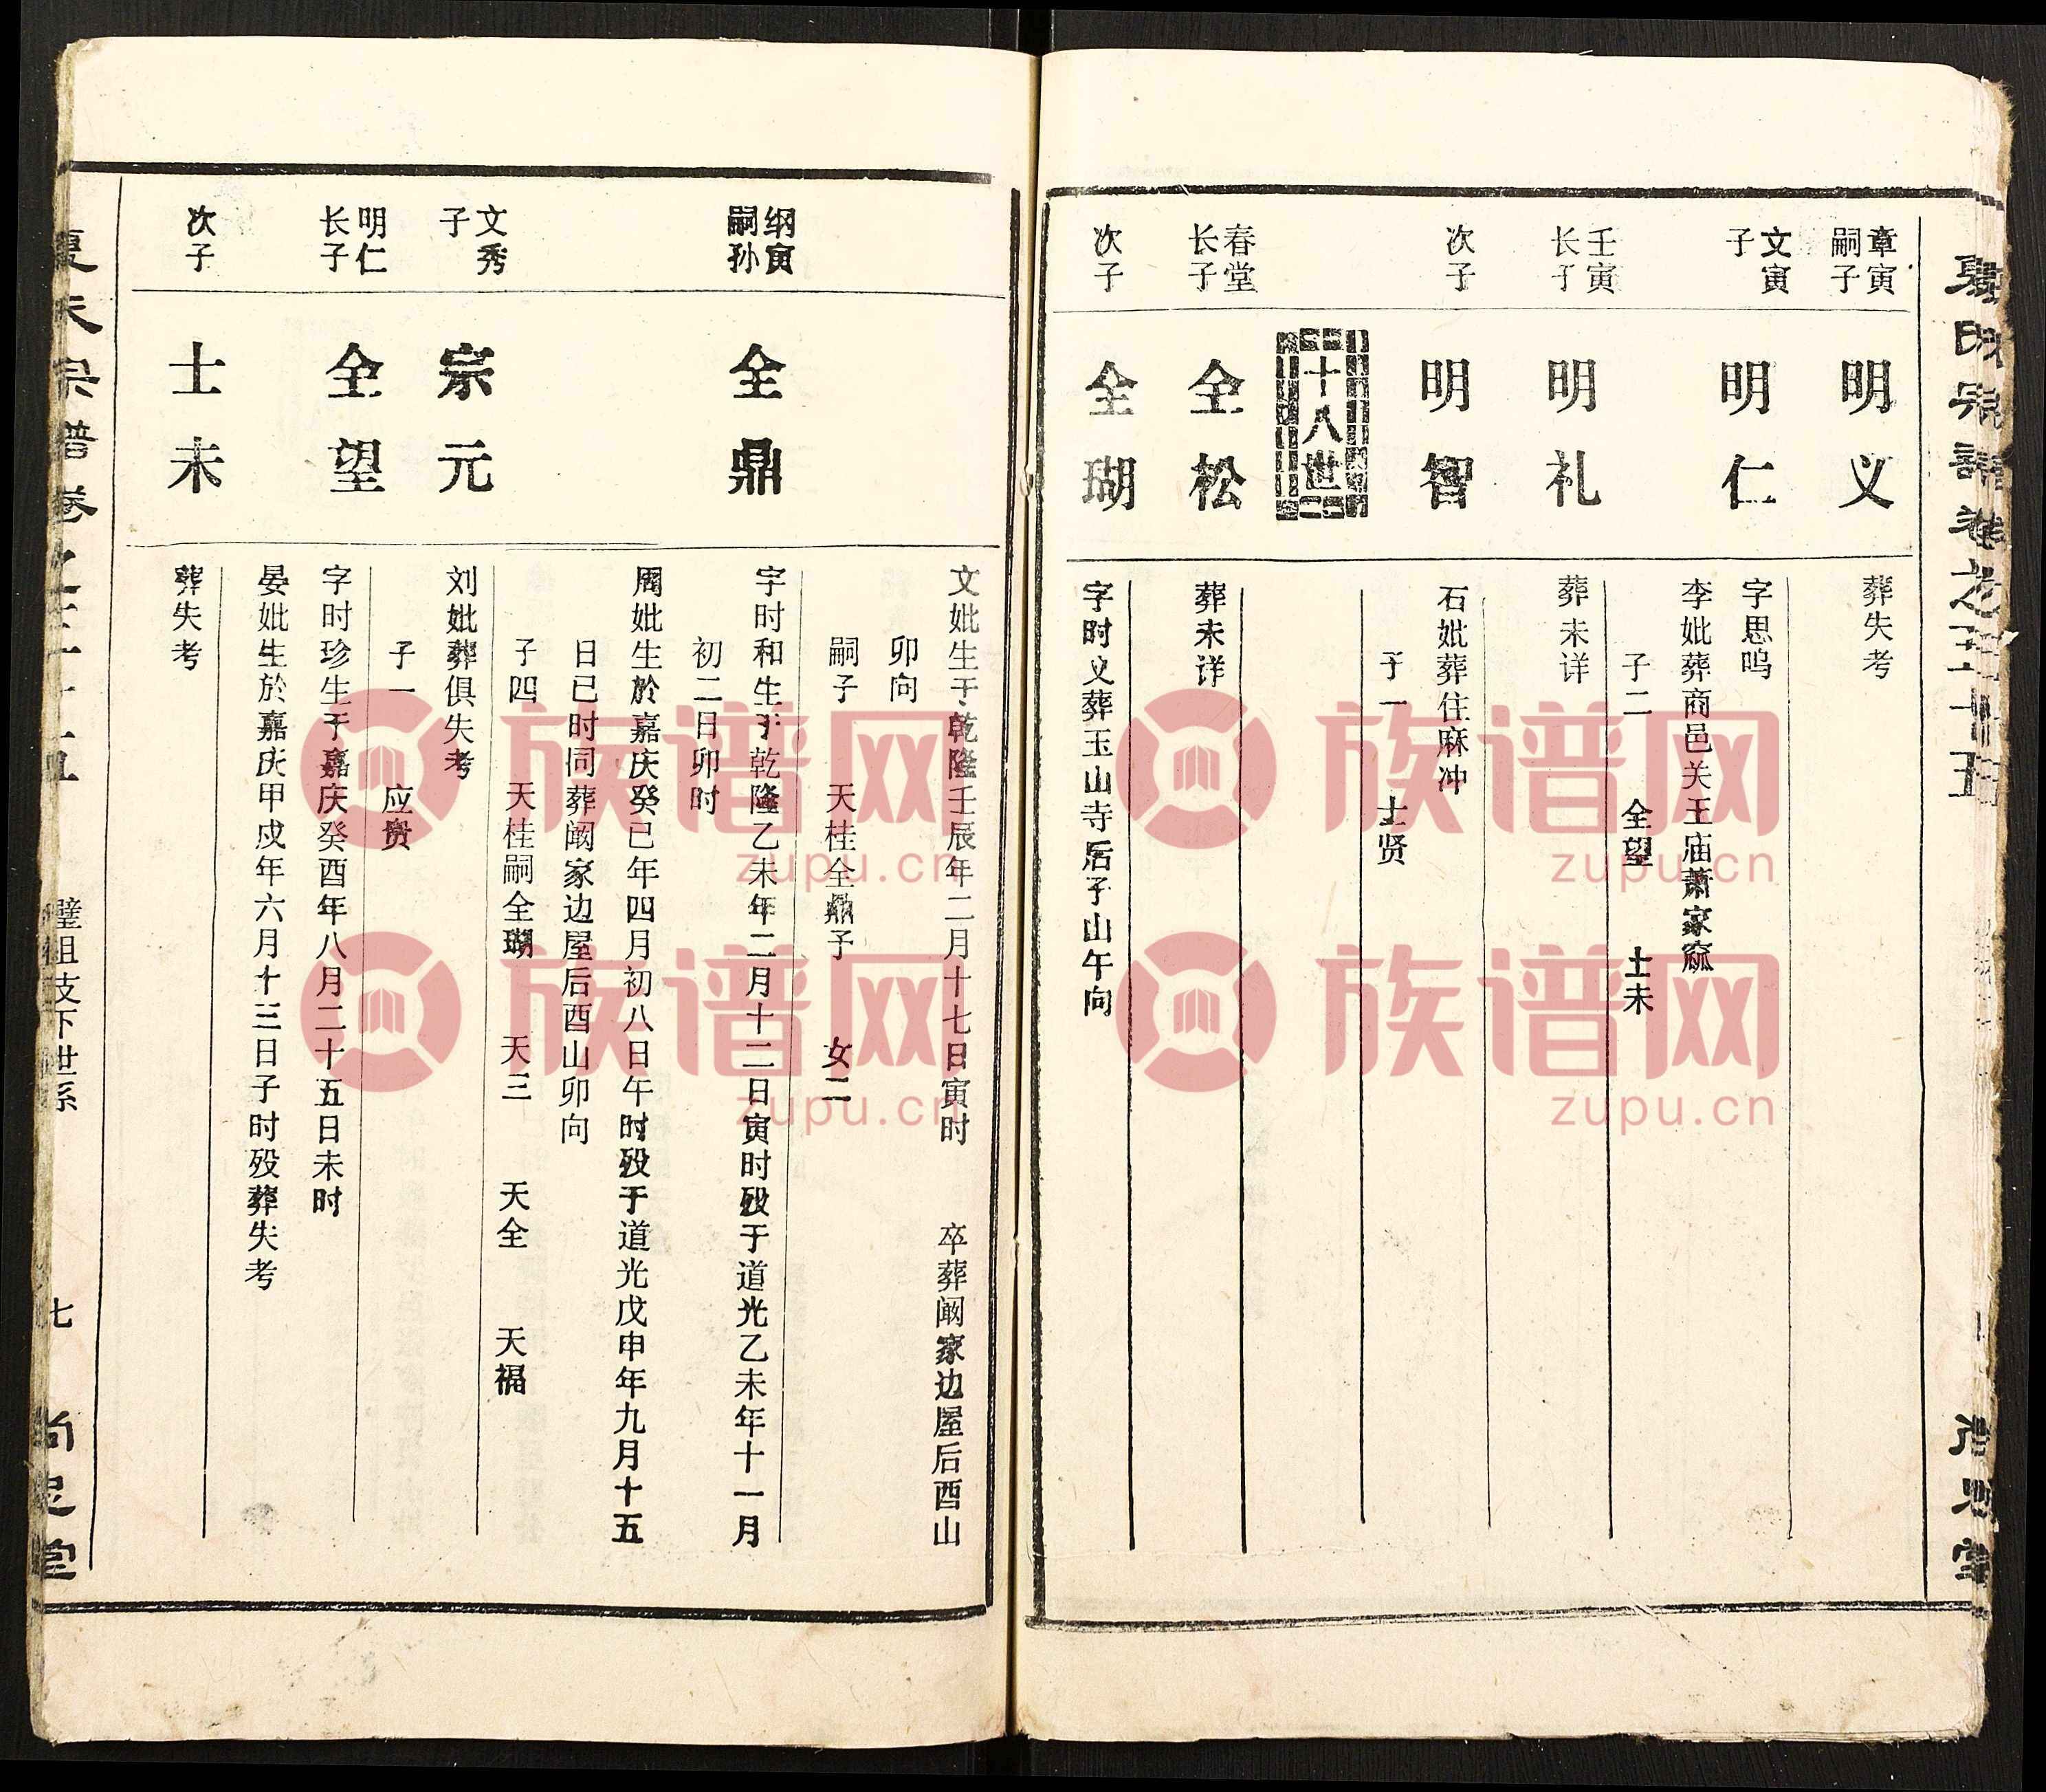 夏氏宗谱卷之五十五
尚忠堂
章寅
嗣子
明义
葬失考
文寅
子
明仁
字思鸣
李妣葬商邑关王庙萧家窊
子二 全望 士未
壬寅
长子
明礼
葬未详
次子
明智
石妣葬住麻冲
子一 士贤
二十八世
春堂
长子
全松
葬未详
次子
全瑚
字时义葬玉山寺后子山午向
文妣生于乾隆壬辰年二月十七日寅时 卒葬阚家边屋后酉山
卯向
嗣子 天桂全鼎子 女二
纲寅
嗣孙
全鼎
字时和生于乾隆乙未年二月十二日寅时殁于道光乙未年十一月
初二日卯时
周妣生於嘉庆癸巳年四月初八日午时殁于道光戊申年九月十五
日已时同葬阚家边屋后酉山卯向
子四 天桂嗣全瑚 天三 天全 天福
文秀
子
宗元
刘妣葬俱失考
子一 应贵
明仁
长子
全望
字时珍生于嘉庆癸酉年八月二十五日未时
晏妣生於嘉庆甲戌年六月十三日子时殁葬失考
次子
士未
葬失考
夏氏宗谱卷之五十五
璧祖支下世系
七
尚忠堂
族谱网
zupu.cn
族谱网
zupu.cn
族谱网
zupu.cn
族谱网
zupu.cn